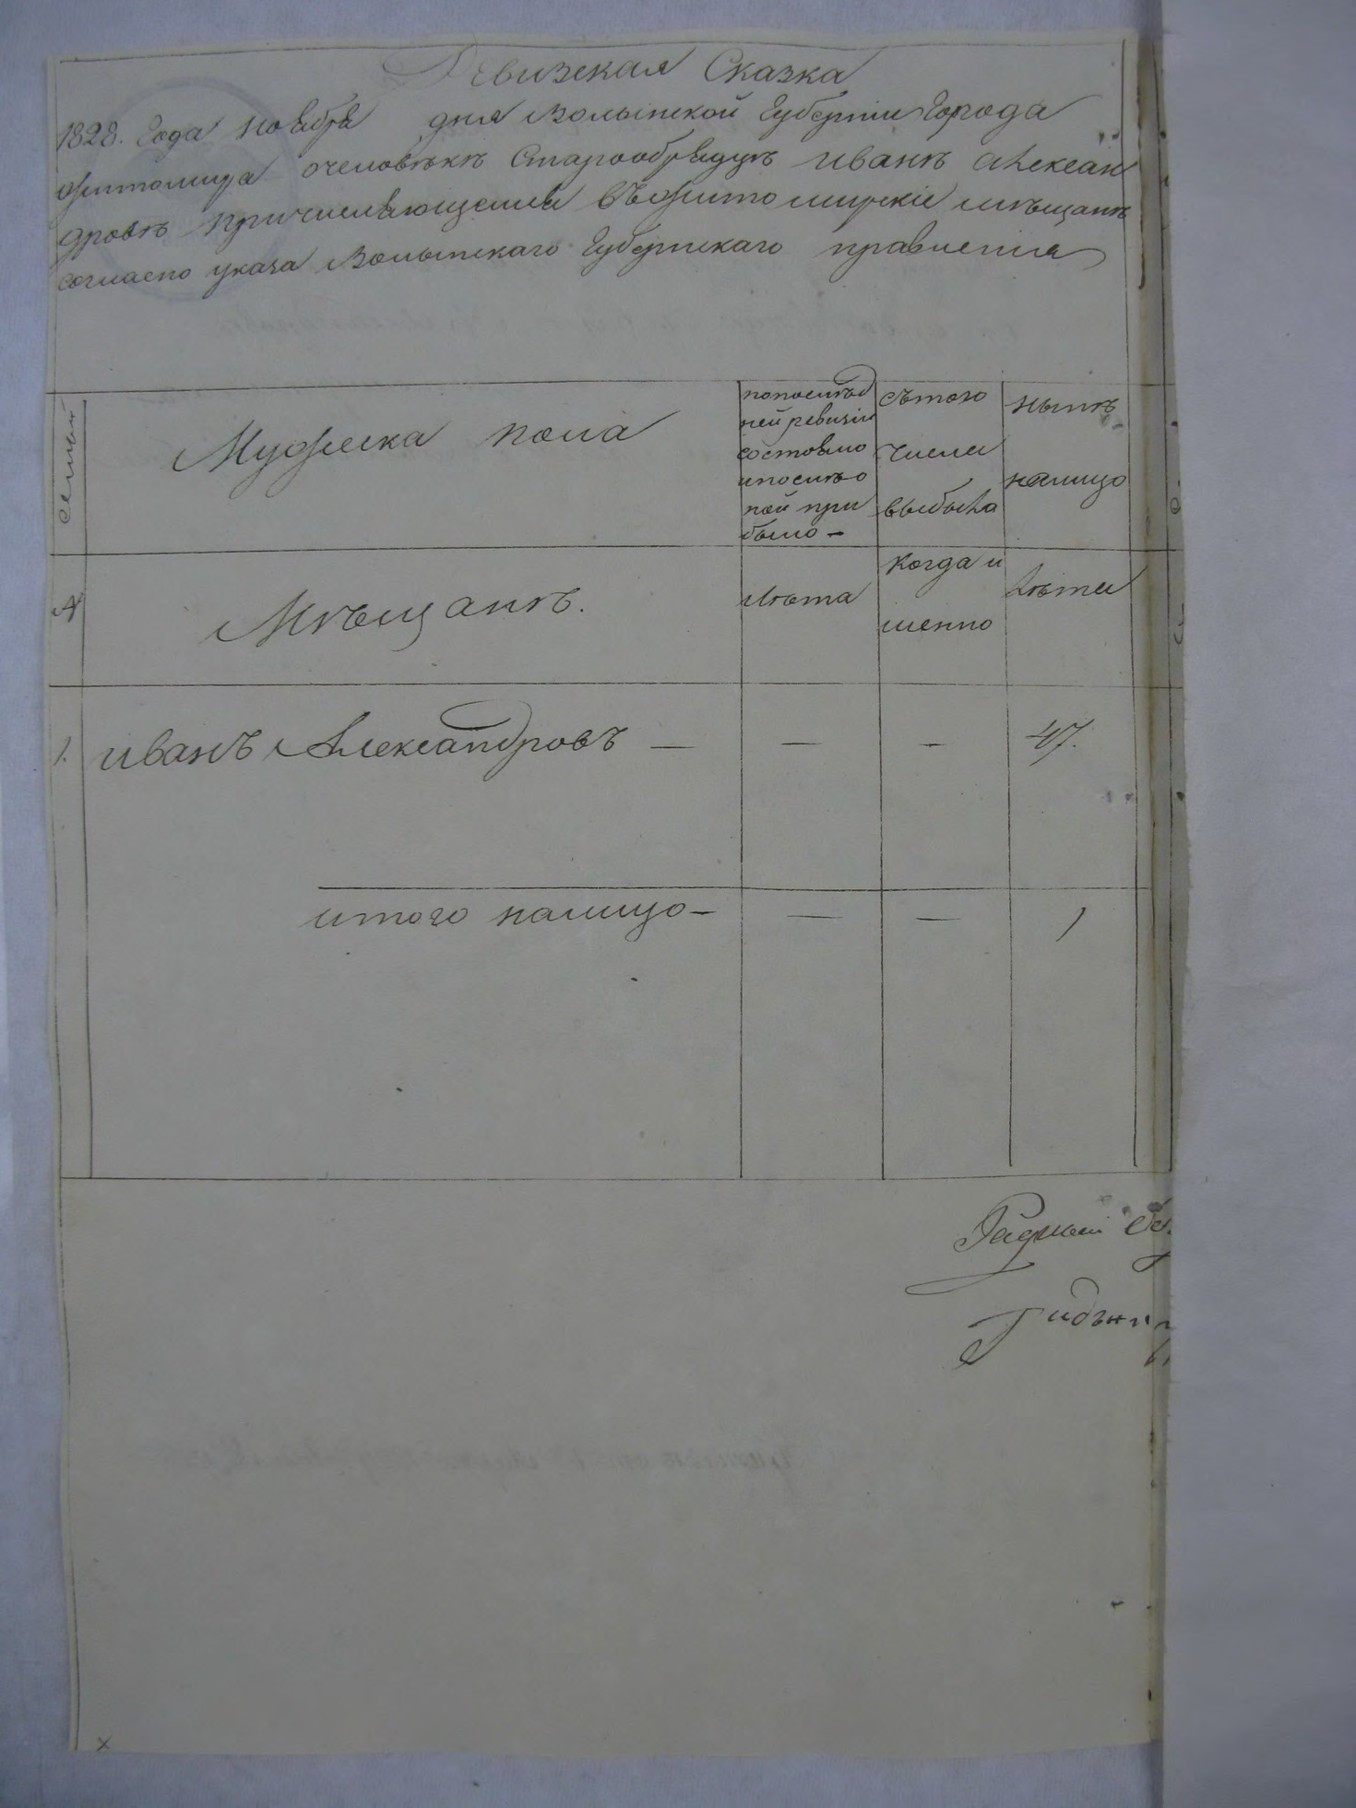 Ревизская Сказка
1828. Года Ноября дня Волынской Губернии Города
Житомира очеловѣкѣ Старообрядцѣ Иванѣ Алексан
дровѣ причисляющемся въ Житомирскіе мѣщане
согласно указа Волынскаго Губернскаго правления
Семьи
Мужеска пола
попослѣд
ней ревизіи
состояло
ипослѣо
ной при
было —
сътого
числа
выбыло
Нынѣ
налицо
№
Мѣщанѣ.
Лѣта
Когда и
менно
Лѣта
1. Иванъ Александровъ — — — 47.
итого налицо — — — 1